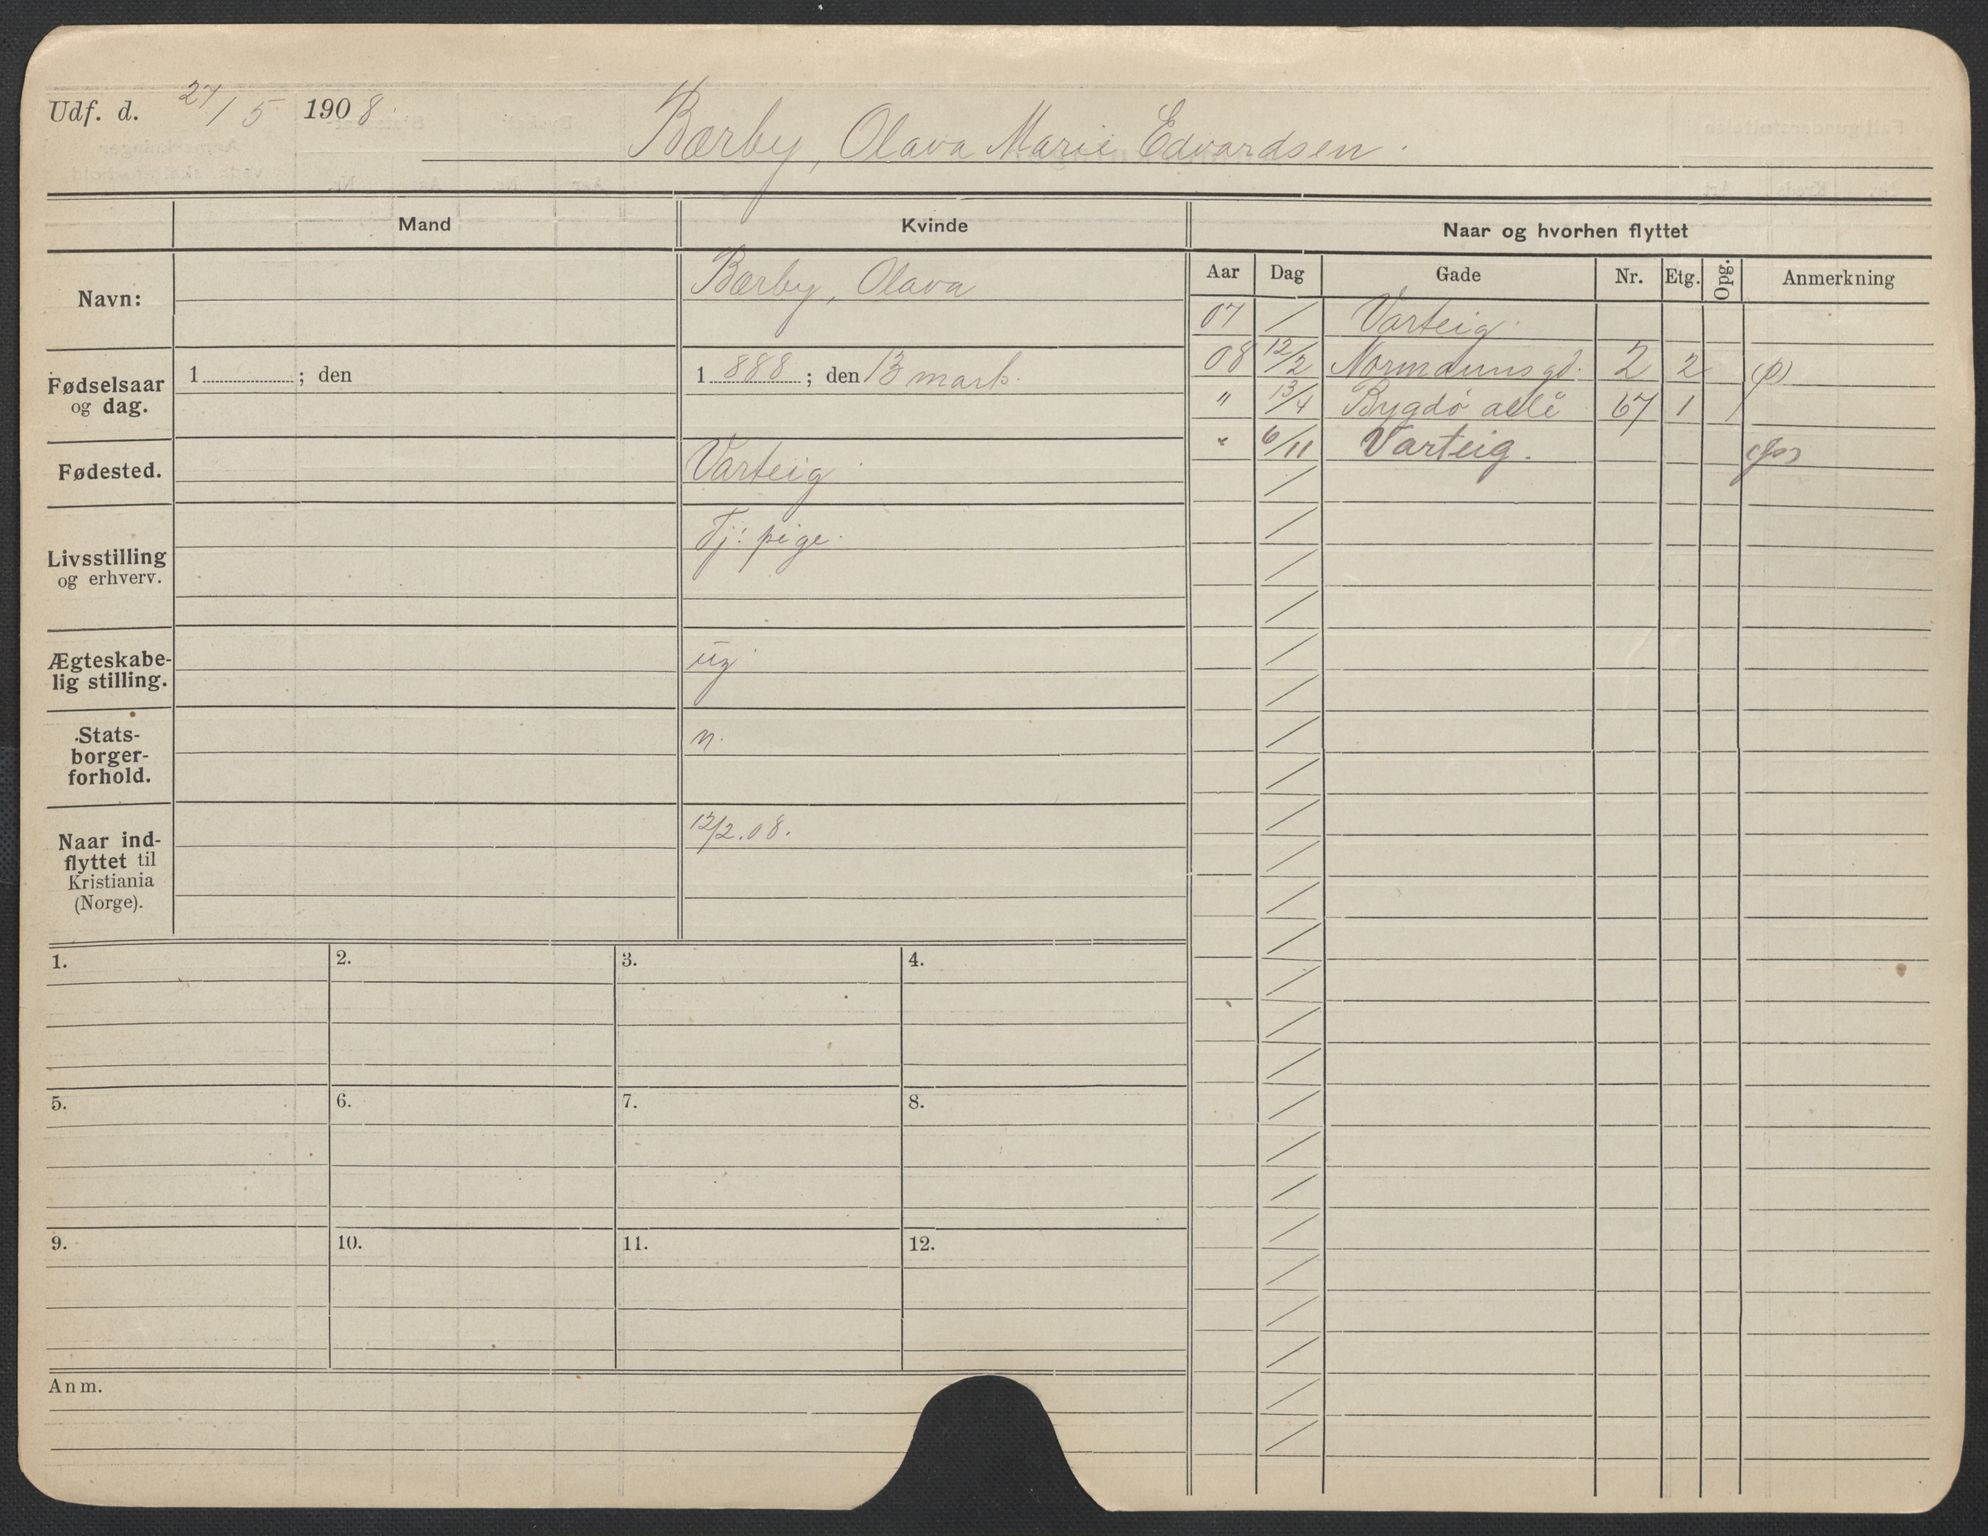 Udf. d. 27/5 1908.
Bærby, Olava Marie Edvardsen.
Mand
Kvinde
Naar og hvorhen flyttet
Navn:
Bærby, Olava
Aar Dag Gade Nr. Etg. Opg. Anmerkning
07 / Varteig.
08 12/2 Normannsgd. 2 2 (p)
" 13/4 Bygdø allé 67 1 /
" 6/11 Varteig.
Fødselsaar
og dag.
1 ; den
1 888 ; den 13 marts.
Fødested.
Varteig
Livsstilling
og erhverv.
Tj: pige.
Ægteskabe-
lig stilling.
ug
Stats-
borger-
forhold.
n.
Naar ind-
flyttet til
Kristiania
(Norge).
12/2.08.
1. 2. 3. 4.
5. 6. 7. 8.
9. 10. 11. 12.
Anm.